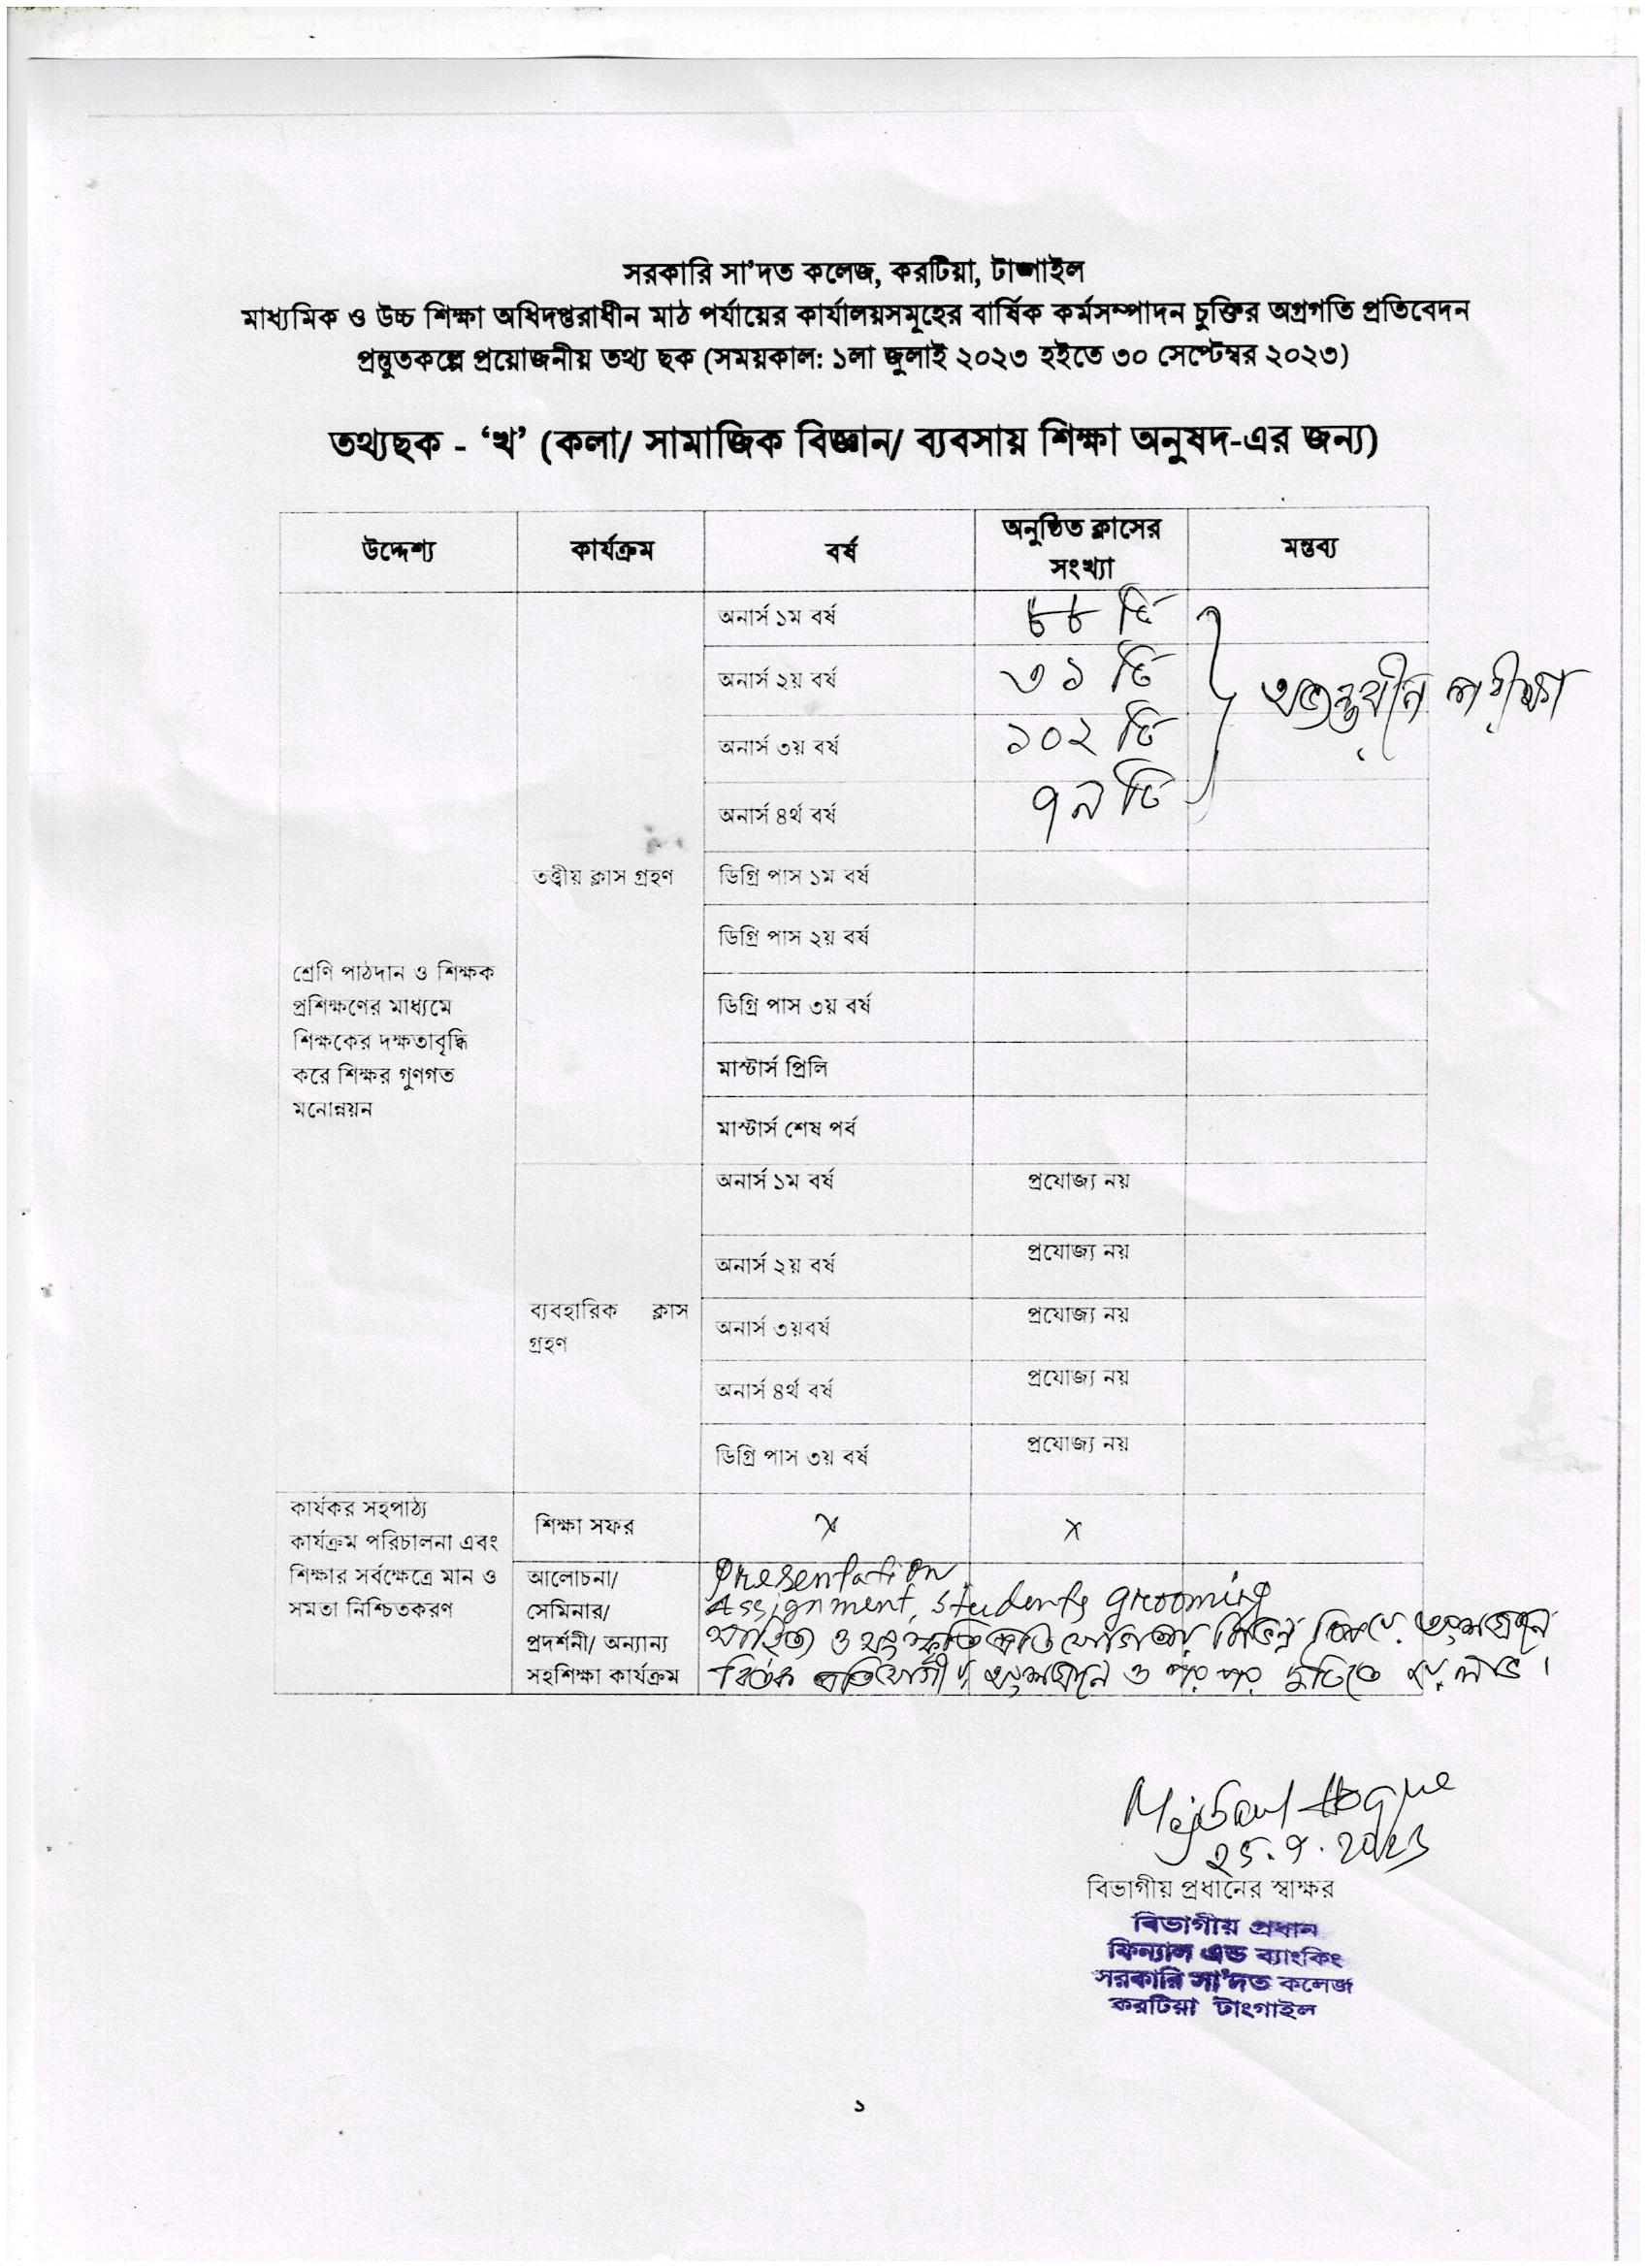 সরকারি সা'দত কলেজ, করটিয়া, টাঙ্গাইল
মাধ্যমিক ও উচ্চ শিক্ষা অধিদপ্তরাধীন মাঠ পর্যায়ের কার্যালয়সমূহের বার্ষিক কর্মসম্পাদন চুক্তির অগ্রগতি প্রতিবেদন
প্রস্তুতকল্পে প্রয়োজনীয় তথ্য ছক (সময়কাল: ১লা জুলাই ২০২৩ হইতে ৩০ সেপ্টেম্বর ২০২৩)
তথ্যছক - 'খ' (কলা/ সামাজিক বিজ্ঞান/ ব্যবসায় শিক্ষা অনুষদ-এর জন্য)
উদ্দেশ্য কার্যক্রম বর্ষ অনুষ্ঠিত ক্লাসের সংখ্যা মন্তব্য
শ্রেণি পাঠদান ও শিক্ষক
প্রশিক্ষণের মাধ্যমে
শিক্ষকের দক্ষতাবৃদ্ধি
করে শিক্ষর গুণগত
মনোন্নয়ন
তত্ত্বীয় ক্লাস গ্রহণ
অনার্স ১ম বর্ষ ৮৮ টি
অনার্স ২য় বর্ষ ৩১ টি
অনার্স ৩য় বর্ষ ১০২ টি
অনার্স ৪র্থ বর্ষ ৭৯ টি
পরীক্ষা
ডিগ্রি পাস ১ম বর্ষ
ডিগ্রি পাস ২য় বর্ষ
ডিগ্রি পাস ৩য় বর্ষ
মাস্টার্স প্রিলি
মাস্টার্স শেষ পর্ব
ব্যবহারিক ক্লাস
গ্রহণ
অনার্স ১ম বর্ষ প্রযোজ্য নয়
অনার্স ২য় বর্ষ প্রযোজ্য নয়
অনার্স ৩য়বর্ষ প্রযোজ্য নয়
অনার্স ৪র্থ বর্ষ প্রযোজ্য নয়
ডিগ্রি পাস ৩য় বর্ষ প্রযোজ্য নয়
কার্যকর সহপাঠ্য
কার্যক্রম পরিচালনা এবং
শিক্ষার সর্বক্ষেত্রে মান ও
সমতা নিশ্চিতকরণ
শিক্ষা সফর x x
আলোচনা/
সেমিনার/
প্রদর্শনী/ অন্যান্য
সহশিক্ষা কার্যক্রম
Presentation
Assignment, Students grooming
সাহিত্য ও সংস্কৃতি প্রতিযোগিতার বিভিন্ন বিষয়ে অংশগ্রহন
বিতর্ক অংশগ্রহন ও পর পর দুটিতে লাভ।
Mojibul Hoque
25.9.2023
বিভাগীয় প্রধানের স্বাক্ষর
বিভাগীয় প্রধান
ফিন্যান্স এন্ড ব্যাংকিং
সরকারি সা'দত কলেজ
করটিয়া টাংগাইল
১